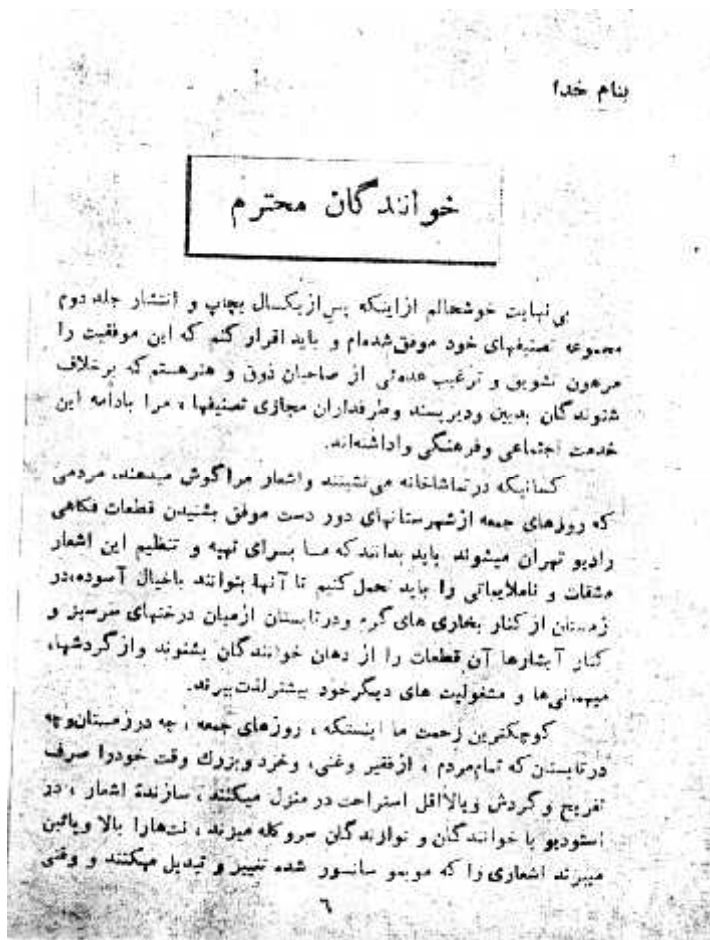 بنام خدا
خوانندگان محترم
بی نهایت خوشحالم از اینکه پس از یکسال بچاپ و انتشار جلد دوم
مجموعه تصنیفهای خود موفق شده‌ام و باید اقرار کنم که این موفقیت را
مرهون تشویق و ترغیب عده‌ئی از صاحبان ذوق و هنر هستم که برخلاف
شنوندگان بدبین و دیرپسند وطرفداران مجازی تصنیفها ، مرا بادامه این
خدمت اجتماعی وفرهنگی واداشته‌اند.
کسانیکه در تماشاخانه می نشینند و اشعار مرا گوش میدهند، مردمی
که روزهای جمعه از شهرستانهای دور دست موفق بشنیدن قطعات فکاهی
رادیو تهران میشوند باید بدانند که ما برای تهیه و تنظیم این اشعار
مشقات و ناملایماتی را باید تحمل کنیم تا آنها بتوانند باخیال آسوده،در
زمستان از کنار بخاری های گرم و در تابستان ازمیان درختهای سرسبز و
کنار آبشارها آن قطعات را از دهان خوانندگان بشنوند واز گردشها،
میهمانی‌ها و مشغولیت های دیگر خود بیشتر لذت ببرند.
کوچکترین زحمت ما اینستکه ، روزهای جمعه ، چه در زمستان وچه
در تابستان که تمام مردم ، از فقیر وغنی، وخرد وبزرك وقت خودرا صرف
تفریح و گردش ویالااقل استراحت در منزل میکنند ، سازندهٔ اشعار ، در
استودیو با خوانندگان و نوازندگان سروکله میزند ، نت‌هارا بالا وپائین
میبرند اشعاری را که موبمو سانسور شده تغییر و تبدیل میکنند و وقتی
٦